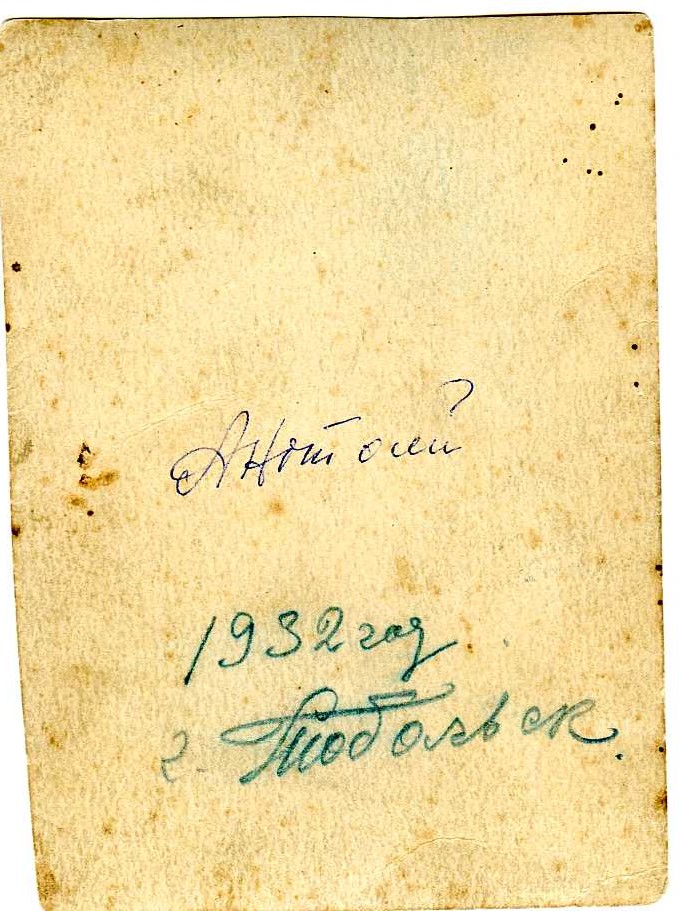 Анатолий
1932 год
г. Тобольск.